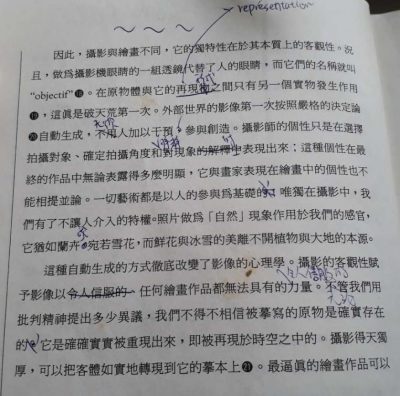 representation
因此，攝影與繪畫不同，它的獨特性在於其本質上的客觀性。況
且，做爲攝影機眼睛的一組透鏡代替了人的眼睛，而它們的名稱就叫
“objectif”⓲。在原物體與它的再現物之間只有另一個實物發生作用
⓳，這眞是破天荒第一次。外部世界的影像第一次按照嚴格的決定論
⓴自動生成，不用人加以干預，參與創造。攝影師的個性只是在選擇
拍攝對象、確定拍攝角度和對現象的解釋中表現出來；這種個性在最
終的作品中無論表露得多麼明顯，它與畫家表現在繪畫中的個性也不
能相提並論。一切藝術都是以人的參與爲基礎的，唯獨在攝影中，我
們有了不讓人介入的特權。照片做爲「自然」現象作用於我們的感官，
它猶如蘭卉，宛若雪花，而鮮花與冰雪的美離不開植物與大地的本源。
這種自動生成的方式徹底改變了影像的心理學。攝影的客觀性賦
予影像以令人信服的、任何繪畫作品都無法具有的力量。不管我們用
批判精神提出多少異議，我們不得不相信被摹寫的原物是確實存在
的，它是確確實實被重現出來，即被再現於時空之中的。攝影得天獨
厚，可以把客體如實地轉現到它的摹本上㉑。最逼眞的繪畫作品可以